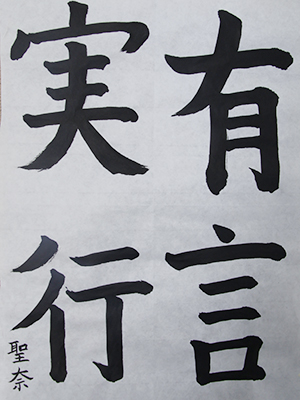 有言
実行
聖奈